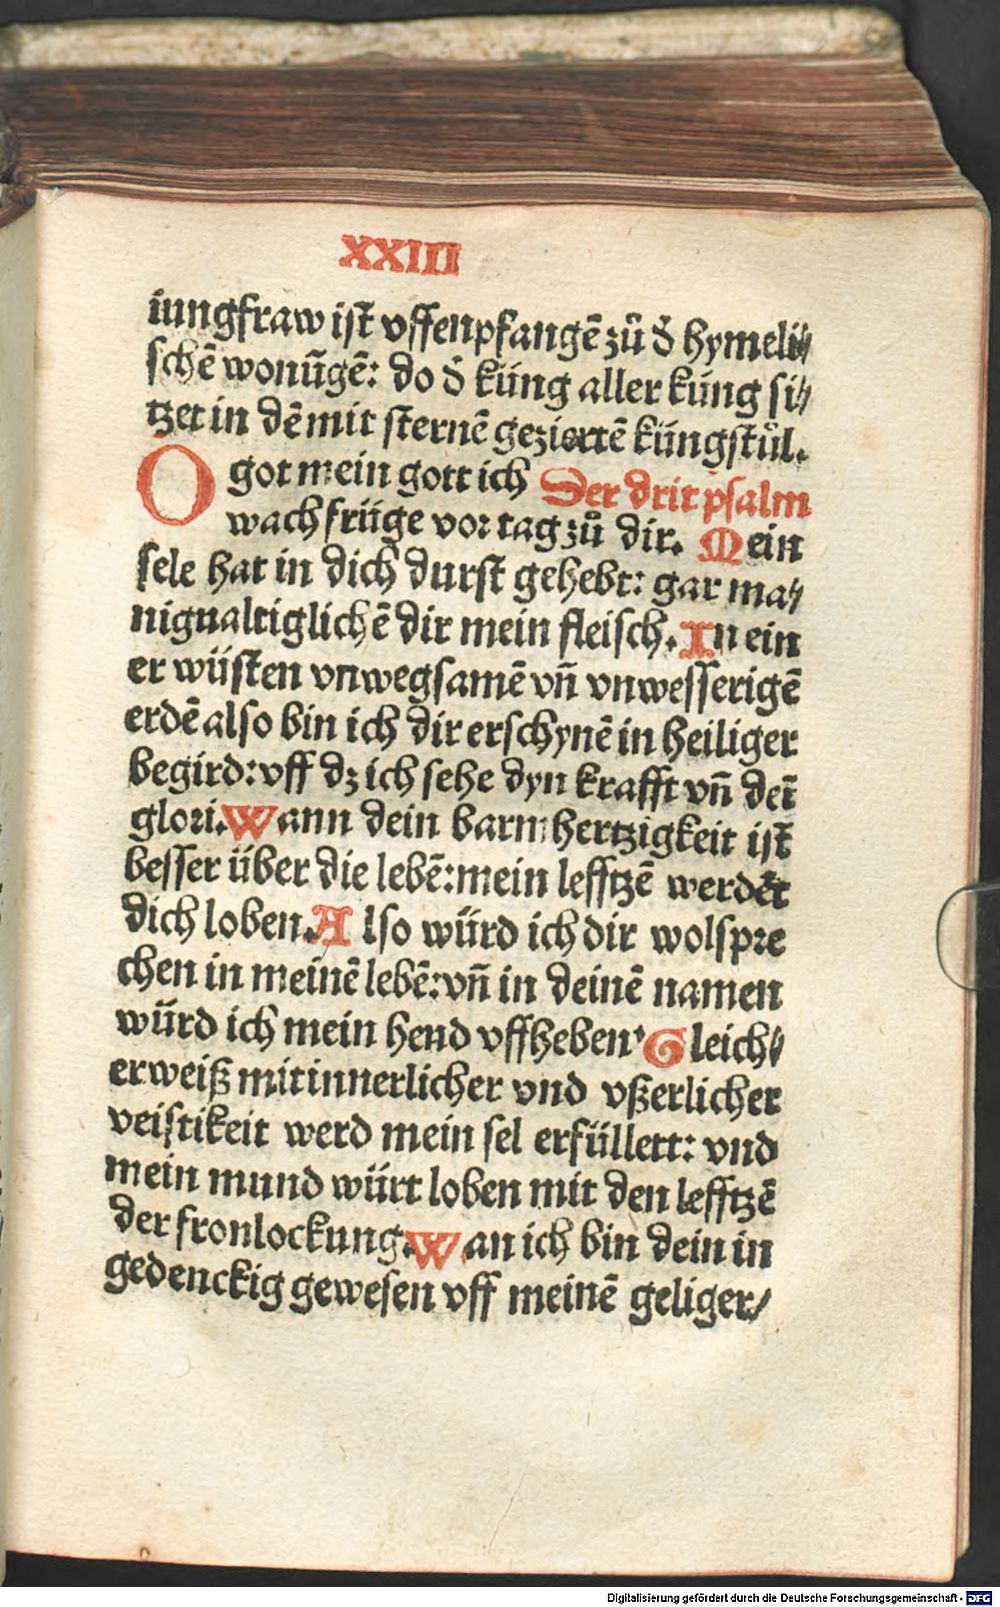 XXIII
iungfraw ist vffenpfangē zů d̄ hymeli⸗
schē wonūgē: do d̄ küng aller küng si⸗
tzet in dē mit sternē gezierrē küngstůl.
O got mein gott ich Der drit psalm
wach früge vor tag zů dir. Mein
sele hat in dich durst gehebt: gar ma⸗
nigualtiglichē dir mein fleisch. In ein
er wüsten vnwegsamē vn̄ vnwesserigē
erdē also bin ich dir erschynē in heiliger
begird: vff dz ich sehe dyn krafft vn̄ der̄
glori. Wann dein barmhertzigkeit ist
besser über die lebē: mein lefftzē werdēt
dich loben. Also würd ich dir wolspre
chen in meinē lebē: vn̄ in deinē namen
würd ich mein hend vffheben. Gleich⸗
erweiß mit innerlicher vnd vßerlicher
veistikeit werd mein sel erfüllett: vnd
mein mund würt loben mit den lefftzē
der fronlockung. Wan ich bin dein in
gedenckig gewesen vff meinē geliger/
Digitalisierung gefördert durch die Deutsche Forschungsgemeinschaft - DFG